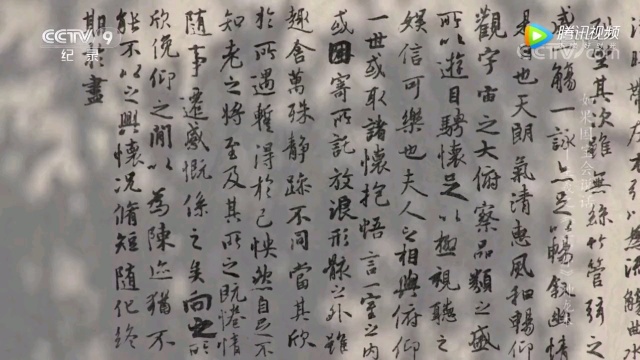 CCTV 9
纪录
腾讯视频
如果国宝会说话
帶左右引以為流觴曲水
列坐其次雖無絲竹管弦之
盛一觴一詠亦足以暢敘幽情
是日也天朗氣清惠風和暢仰
觀宇宙之大俯察品類之盛
所以遊目騁懷足以極視聽之
娛信可樂也夫人之相與俯仰
一世或取諸懷抱悟言一室之內
或因寄所託放浪形骸之外雖
趣舍萬殊靜躁不同當其欣
於所遇蹔得於己怏然自足不
知老之將至及其所之既惓情
隨事遷感慨係之矣向之所
欣俛仰之閒以為陳迹猶不
能不以之興懷況脩短隨化終
期於盡